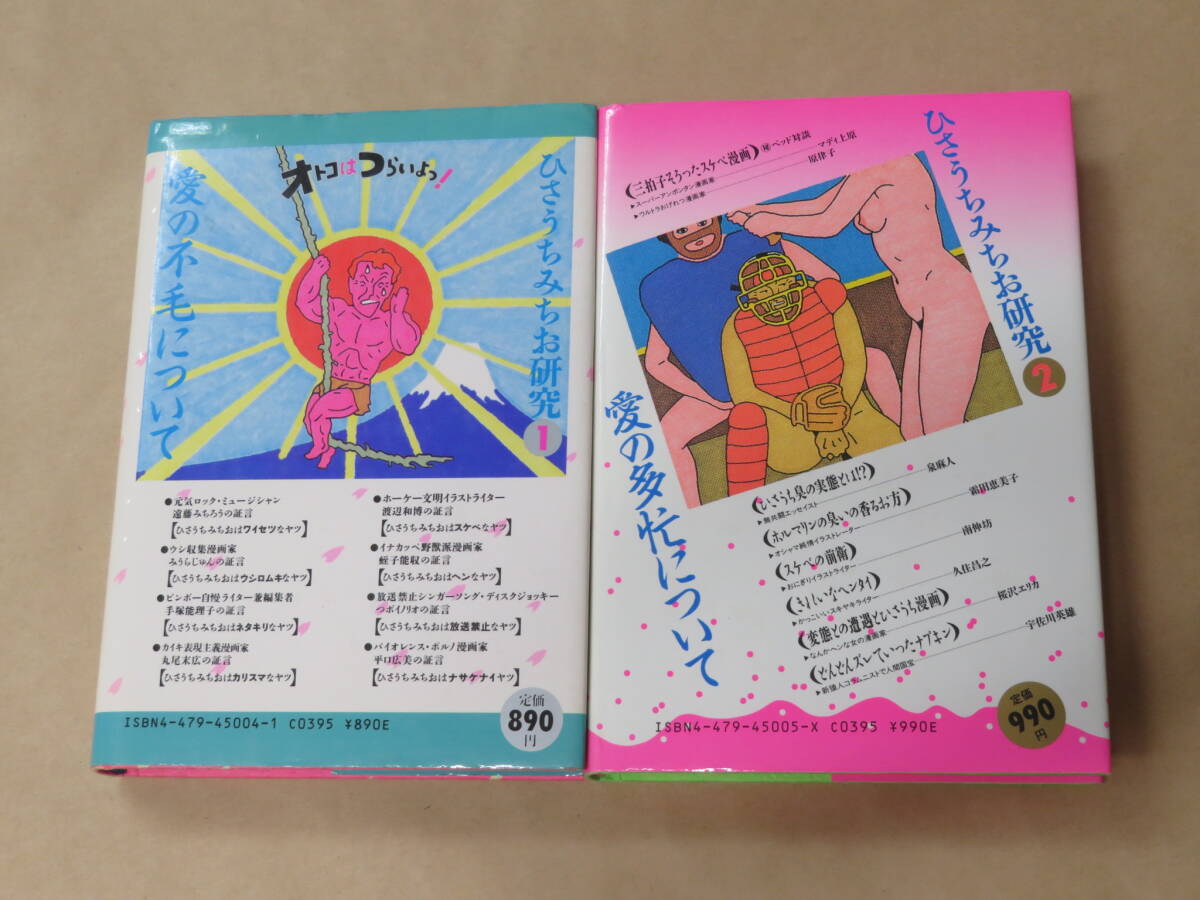 オトコはつらいよっ!
ひさうちみちお研究
1
愛の不毛について
●元気ロック・ミュージシャン
遠藤みちろうの証言
【ひさうちみちおはワイセツなヤツ】
●ウシ収集漫画家
みうらじゅんの証言
【ひさうちみちおはウシロムキなヤツ】
●ビンボー自慢ライター兼編集者
手塚能理子の証言
【ひさうちみちおはネタキリなヤツ】
●カイキ表現主義漫画家
丸尾末広の証言
【ひさうちみちおはカリスマなヤツ】
●ホーケー文明イラストライター
渡辺和博の証言
【ひさうちみちおはスケベなヤツ】
●イナカッペ野獣派漫画家
蛭子能収の証言
【ひさうちみちおはヘンなヤツ】
●放送禁止シンガーソング・ディスクジョッキー
つボイノリオの証言
【ひさうちみちおは放送禁止なヤツ】
●バイオレンス・ポルノ漫画家
平口広美の証言
【ひさうちみちおはナサケナイヤツ】
定価
890
円
ISBN4-479-45004-1 C0395 ¥890E
ひさうちみちお研究
2
愛の多忙について
(三拍子そろったスケベ漫画)㊙ベッド対談
▶スーパーアンポンタン漫画家 マディ上原
▶ウルトラおげれつ漫画家 原律子
(ひさうち臭の実態とは!?)
▶無共闘エッセイスト 泉麻人
(ホルマリンの臭いの香るお方)
▶オシャマ純情イラストレーター 霜田恵美子
(スケベの前衛)
▶おにぎりイラストライター 南伸坊
(きれいなヘンタイ)
▶かっこいいスキヤキライター 久住昌之
(変態との遭遇とひさうち漫画)
▶なんかヘンな女の漫画家 桜沢エリカ
(どんどんズレていったナプキン)
▶新猿人コラムニストで人間国宝 宇佐川英雄
定価
990
円
ISBN4-479-45005-X C0395 ¥990E